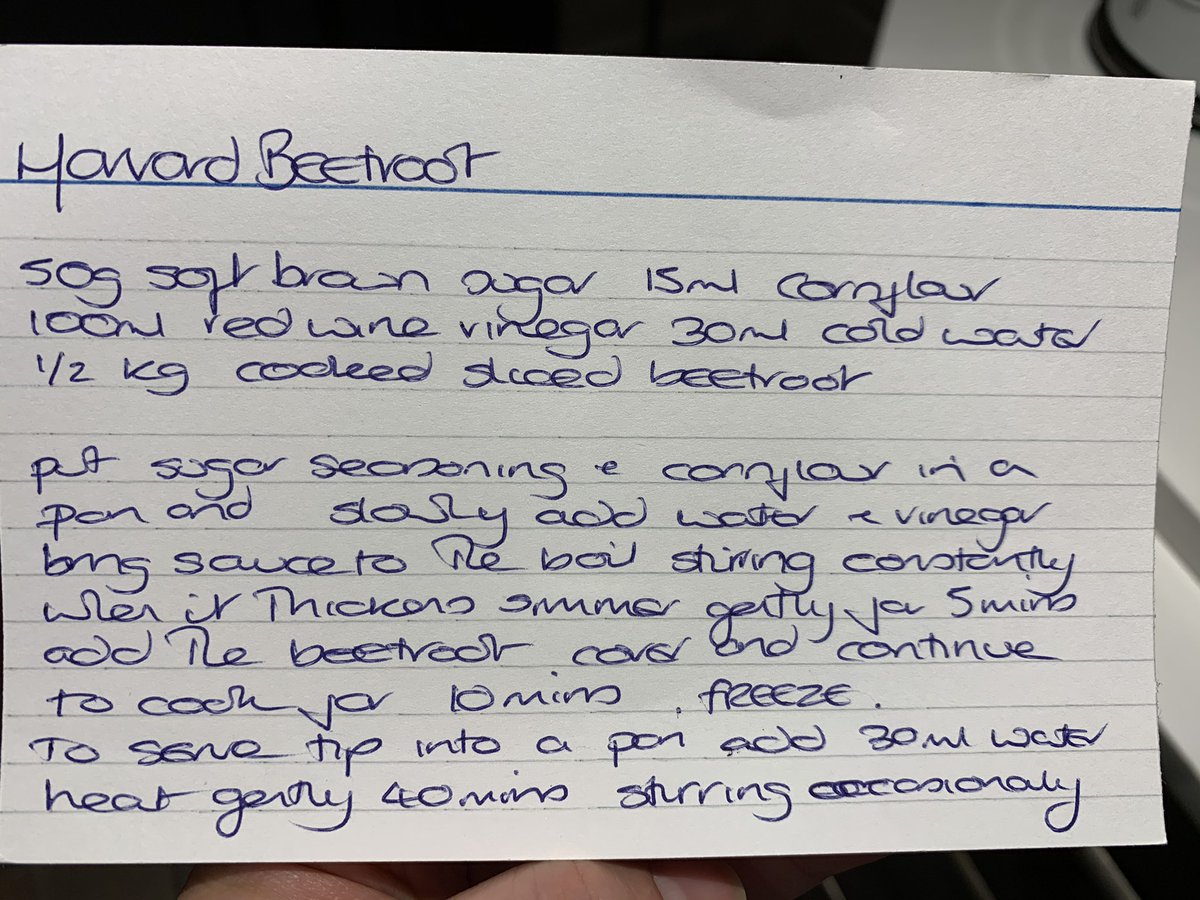 Harvard Beetroot
50g soft brown sugar 15ml cornflour
100ml red wine vinegar 30ml cold water
1/2 kg cooked sliced beetroot
put sugar seasoning & cornflour in a
pan and slowly add water & vinegar
bring sauce to the boil stirring constantly
when it thickens simmer gently for 5mins
add the beetroot cover and continue
to cook for 10mins. FREEZE.
To serve tip into a pan add 30ml water
heat gently 40mins stirring occasionaly